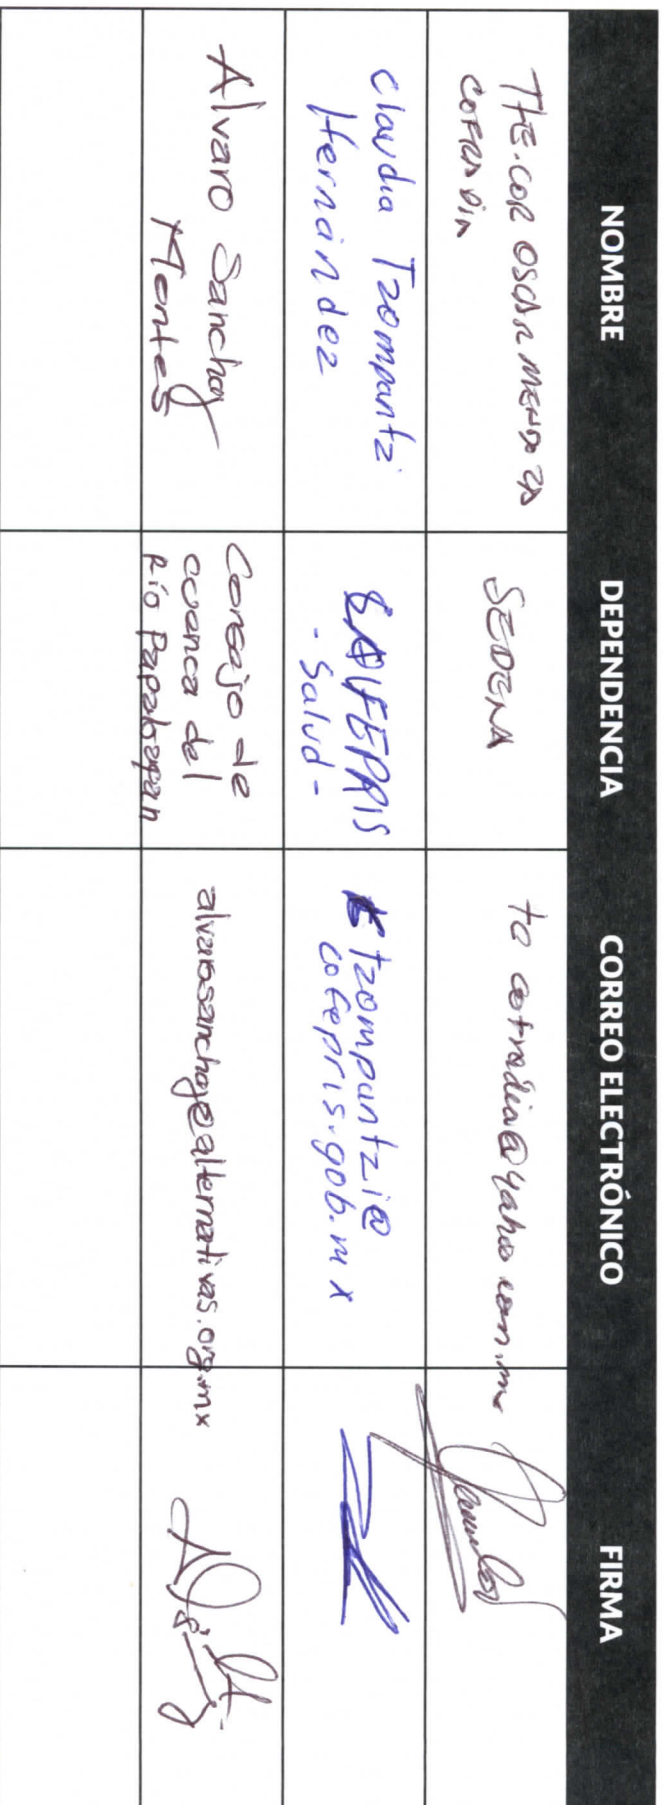 NOMBRE DEPENDENCIA CORREO ELECTRÓNICO FIRMA
TTE. COR OSCAR MENDOZA
COFRADIA
SEDENA
to cofradia@yahoo.com.mx
Claudia Tzompantzi
Hernández
CALFEPRIS
- Salud -
tzompantzi@
cofepris.gob.mx
Alvaro Sanchoy
Montes
Consejo de
cuenca del
Río Papaloapan
alvarosanchoy@alternativas.org.mx